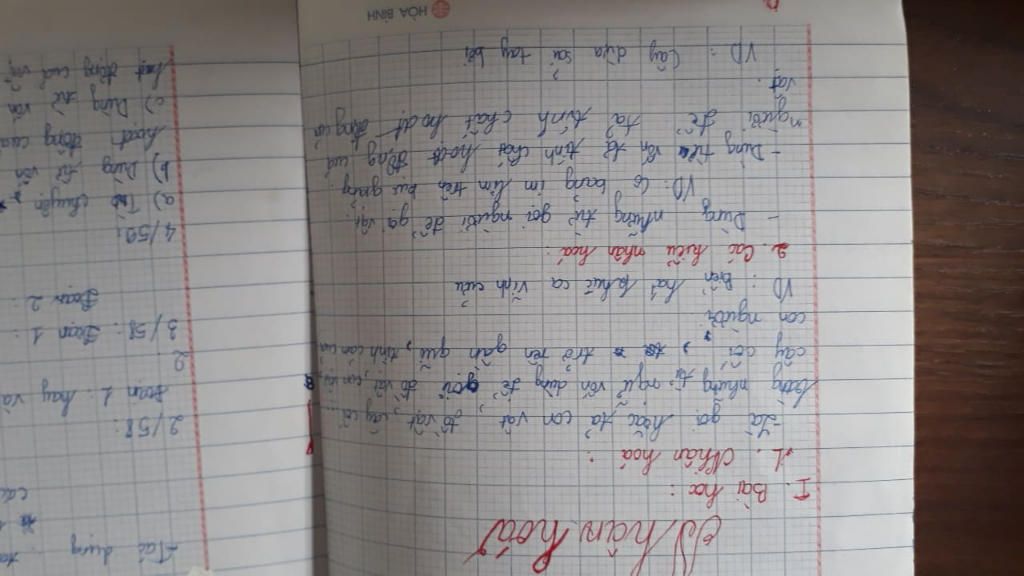 Nhân hoá
I. Bài học:
1. Nhân hoá:
- Là gọi hoặc tả con vật, đồ vật, cây cối...
bằng những từ ngữ vốn dùng để gọi
cây cối, trở nên gần gũi, tính con vật
con người.
VD: Biển hát khúc ca vĩnh cửu
2. Các kiểu nhân hoá:
- Dùng những từ gọi người để gọi vật:
VD: bảng im lìm trên bục giảng.
- Dùng từ vốn tả tính chất hoạt động của
người để tả tính chất hoạt động của
vật.
VD: Cây dừa sải tay bơi
HÒA BÌNH
- Tác dụng:
các
2/58:
Đoạn 1: hay và
2
3/58: Đoạn 1:
Đoạn 2:
4/59:
a) Trò chuyện
b) Dùng từ vốn
hoạt động của
c) Dùng từ vốn
hoạt động của vật